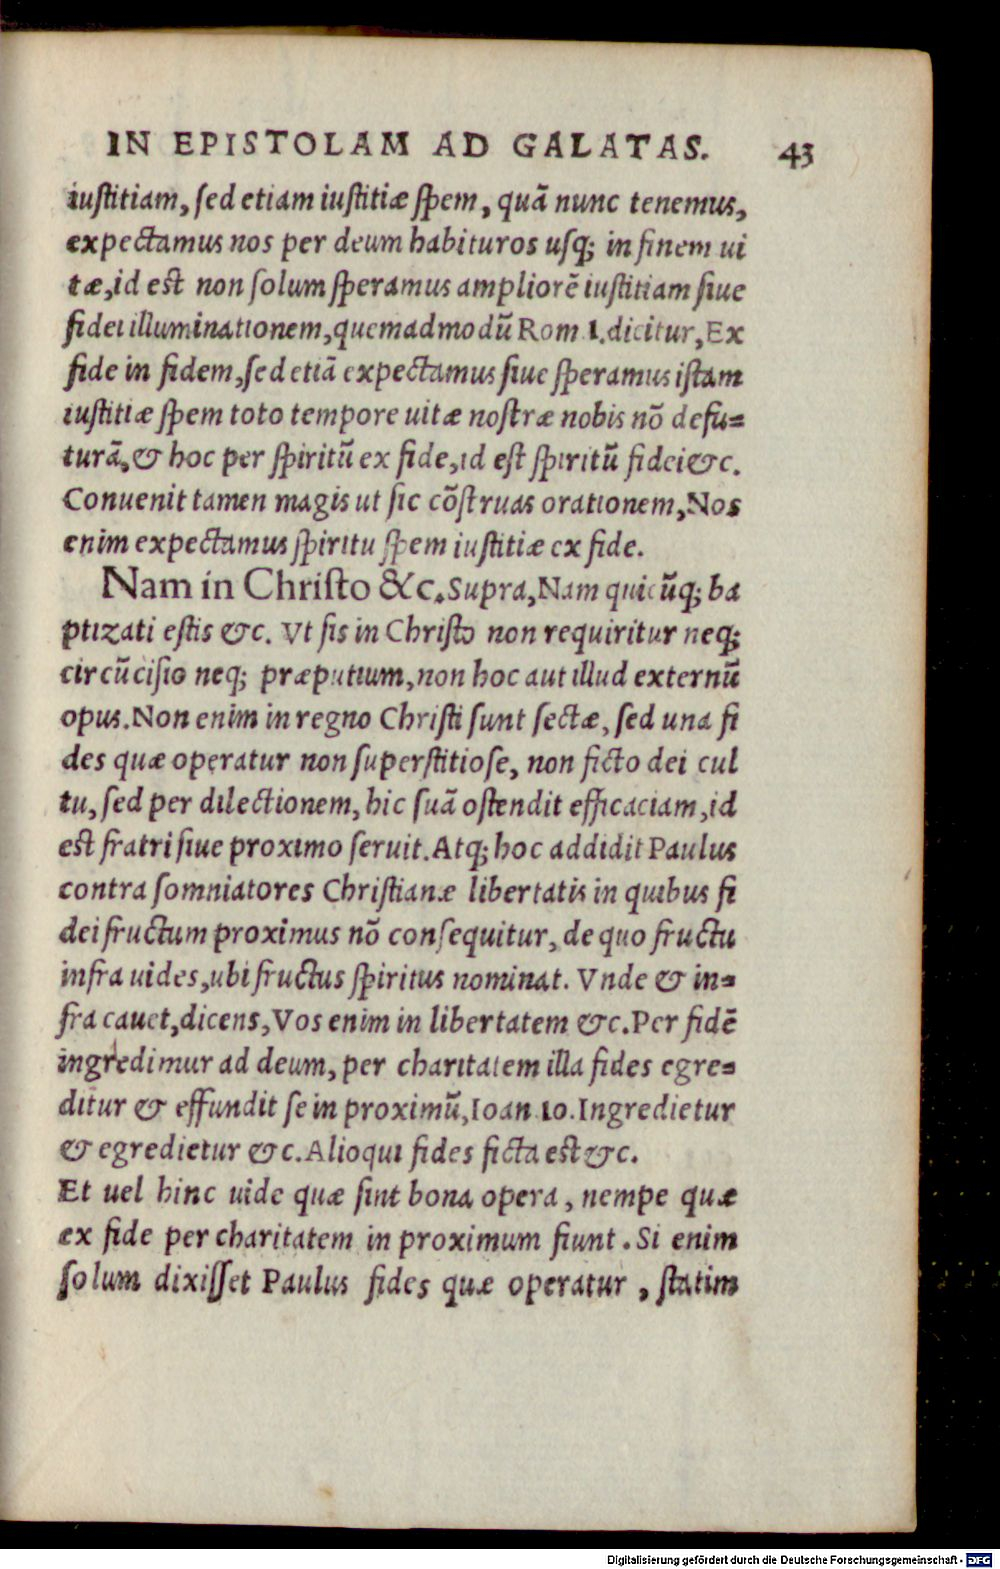 IN EPISTOLAM AD GALATAS. 43
iuſtitiam, ſed etiam iuſtitiæ ſpem, quā nunc tenemus,
expectamus nos per deum habituros uſq; in finem ui
tæ, id est non ſolum ſperamus ampliorē iuſtitiam ſiue
fidei illuminationem, quemadmodū Rom 1. dicitur, Ex
fide in fidem, ſed etiā expectamus ſiue ſperamus iſtam
iuſtitiæ ſpem toto tempore uitæ noſtræ nobis nō defu⸗
turā, & hoc per ſpiritū ex fide, id eſt ſpiritū fidei &c.
Conuenit tamen magis ut ſic cōſtruas orationem, Nos
enim expectamus ſpiritu ſpem iuſtitiæ ex fide.
Nam in Chriſto &c. Supra, Nam quicūq; ba
ptizati eſtis &c. Vt ſis in Chriſto non requiritur neq;
circūciſio neq; præputium, non hoc aut illud externū
opus. Non enim in regno Chriſti ſunt ſectæ, ſed una fi
des quæ operatur non ſuperſtitioſe, non ficto dei cul
tu, ſed per dilectionem, hic ſuā oſtendit efficaciam, id
eſt fratri ſiue proximo ſeruit. Atq; hoc addidit Paulus
contra ſomniatores Chriſtianæ libertatis in quibus fi
dei fructum proximus nō conſequitur, de quo fructu
infra uides, ubi fructus ſpiritus nominat. Vnde & in⸗
fra cauet, dicens, Vos enim in libertatem &c. Per fidē
ingredimur ad deum, per charitatem illa fides egre⸗
ditur & effundit ſe in proximū, Ioan 10. Ingredietur
& egredietur &c. Alioqui fides ficta est &c.
Et uel hinc uide quæ ſint bona opera, nempe quæ
ex fide per charitatem in proximum fiunt. Si enim
ſolum dixiſſet Paulus fides quæ operatur, ſtatim
Digitalisierung gefördert durch die Deutsche Forschungsgemeinschaft - DFG